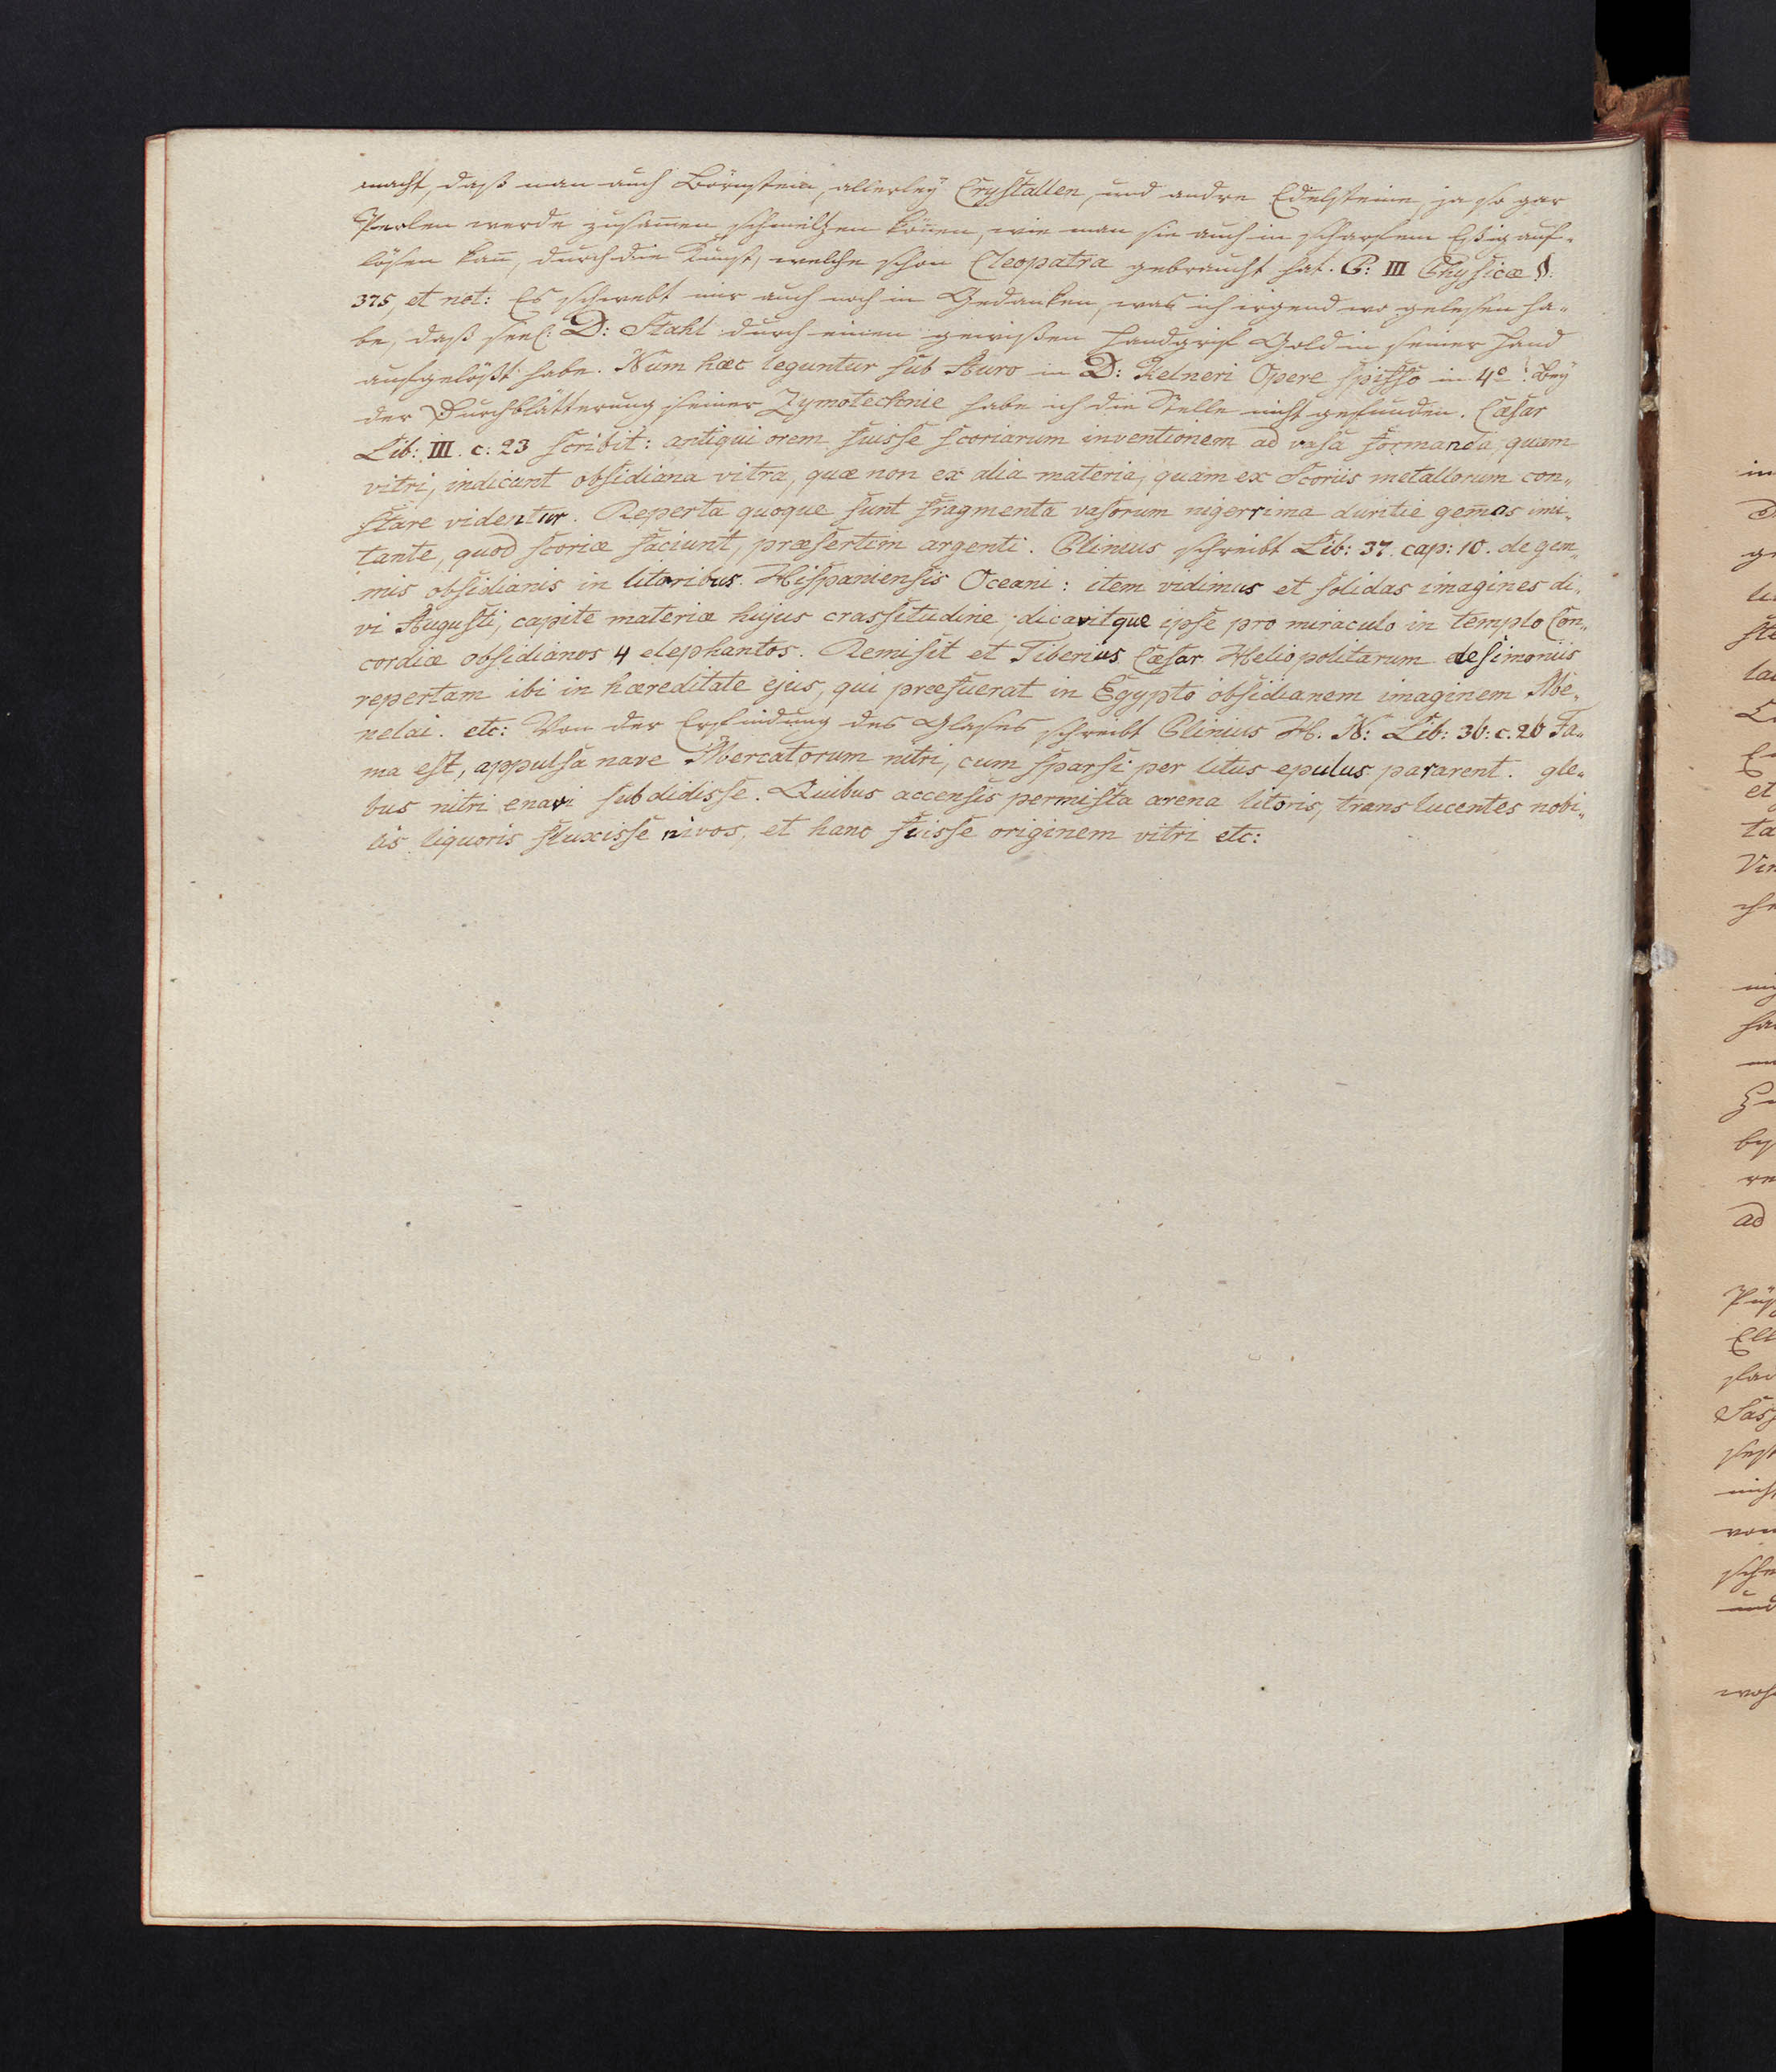 macht, daß man auch Börnstein, allerley Crystallen, und andre Edelsteine, ja so gar
Perlen werde zusam̅en schmeltzen kön̅en, wie man sie auch in scharfem Eßig auf-
lösen kan̅, durch die Kunst, welche schon Cleopatra gebraucht hat. P: III Physicæ §.
375, et not: Es schwebt mir auch noch in Gedanken, was ich irgend wo gelesen ha-
be, daß seel: D: Stahl durch einen gewißen Handgrif Gold in seiner Hand
aufgelößt habe. Num hæc leguntur sub Auro in D: Kelneri Opere spisso in 4o? Bey
der Durchblätterung seiner Zymotechnie habe ich die Stelle nicht gefunden. Cæsar
Lib: III. c: 23 scribit: antiqui orem fuisse scoriarum inventionem ad vasa formanda, quam
vitri, indicant obsidiana vitra, quæ non ex alia materia, quam ex scoriis metallorum con-
stare videntur. Reperta quoque sunt fragmenta vasorum nigerrima duritie gem̅as imi-
tante, quod scoriæ faciunt, præsertim argenti. Plinius schreibt Lib: 37. cap: 10. de gem-
mis obsidianis in litoribus Hispaniensis Oceani: item vidimus et solidas imagines di-
vi Augusti, capite materiæ hujus crassitudine, dicavitque ipse pro miraculo in templo Con-
cordiæ obsidianos 4 elephantos. Remisit et Tiberius Cæsar Heliopolitarum desimoniis
repertam ibi in hæreditate ejus, qui præfuerat in Egypto obsidianem imaginem Me-
nelai. etc: Von der Erfindung des Glases schreibt Plinius H. N: Lib: 36: c. 26 Fa-
ma est, appulsa nave Mercatorum nitri, cum sparsi per litus epulus pararent. gle-
bus nitri enavi subdidisse. Quibus accensis permista arena litoris, trans lucentes nobi-
lis liquoris fluxisse nivos, et hanc fuisse originem vitri etc: